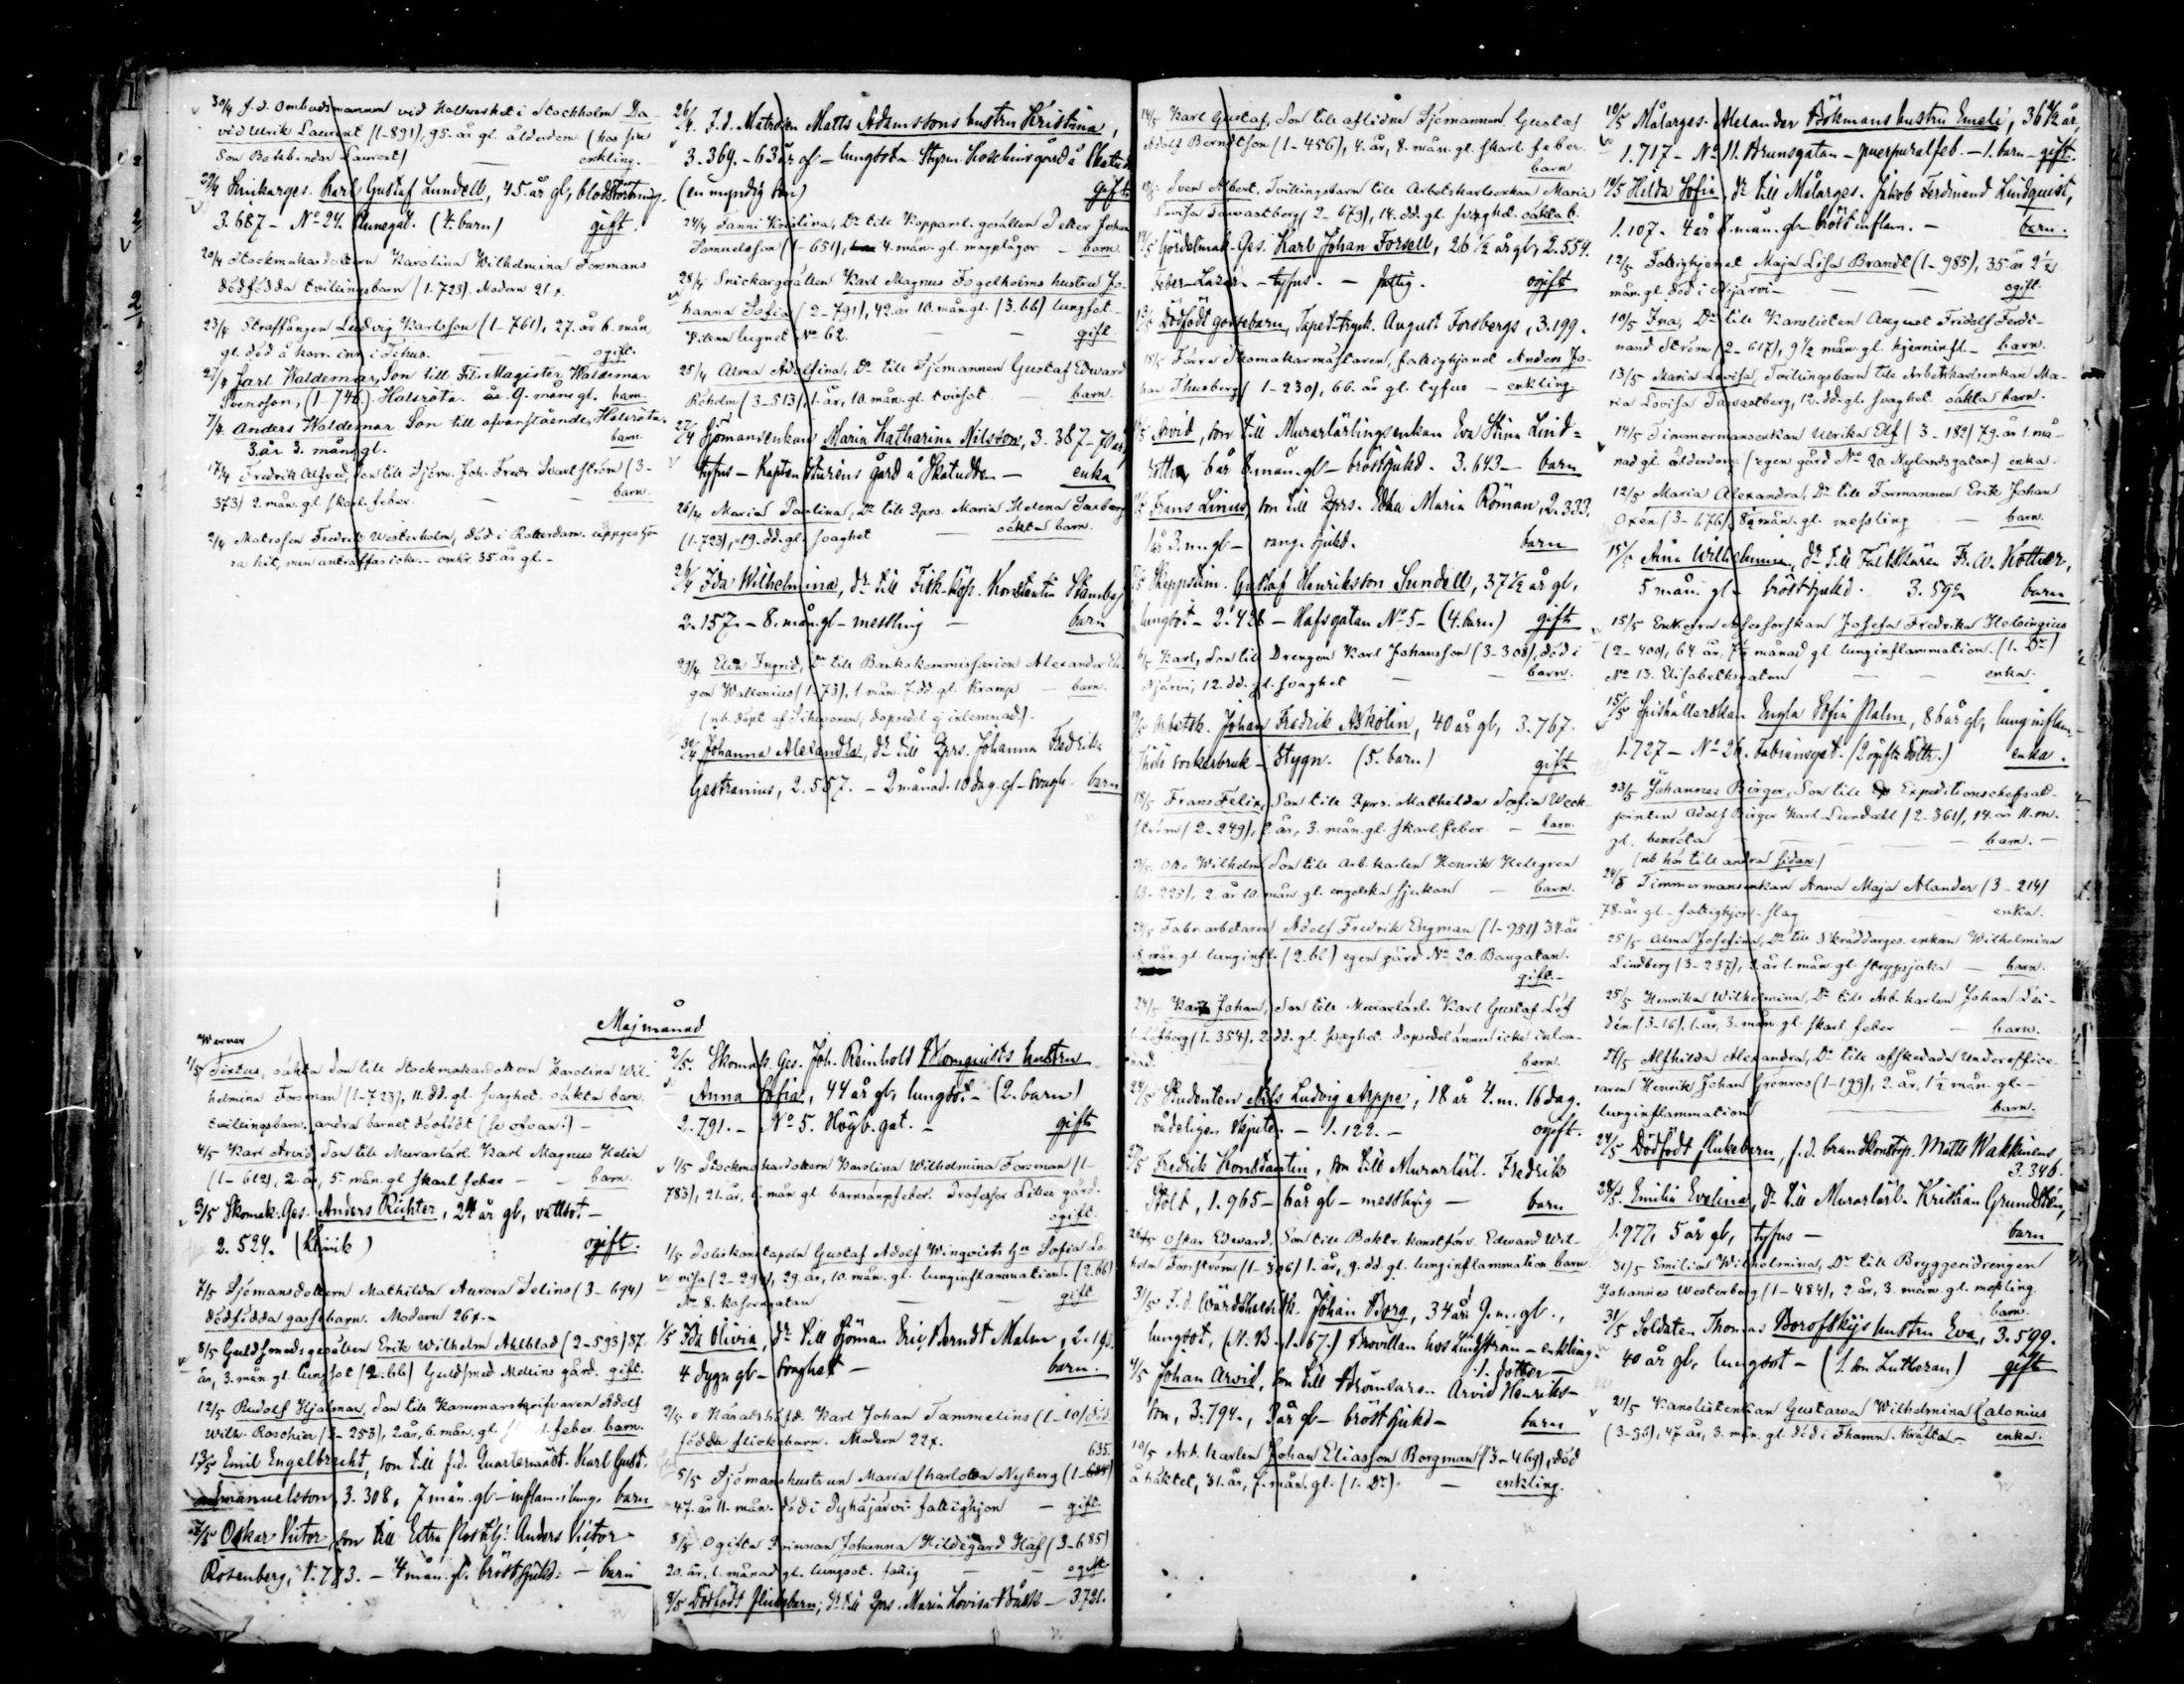 30/4 f.d. Ombudsmannen vid Hallwerket i Stockholm Da-
vid Ulrik Laurent (1-891), 95. år gl. ålderdom (hos sin
Son Bokbindar Laurent) — enkling.
Snickarges. Karl Gustaf Lundell, 45. år gl, blodstörtning.
3.687 - No 24. gat. (4. barn) gift.
20/4 Stockmakardottern Karolina Wilhelmina Forsmans
dödfödda tvillingsbarn (1-723). Modern 21 .
23/4 Straffången Ludvig Karlsson (1-761), 27. år 6. mån.
gl. död å korr. inr. i Tehus. — ogift.
27/4 Jarl Waldemar, Son till Fil. Magister Waldemar
Svensson, (1-746). Halsröta. 9. mån. gl. barn.
7/4 Anders Waldemar Son till ofvanstående, Halsröta.
3. år 3. mån. gl. barn.
17/4 Fredrik Alfred, Son till Sjöm. Joh. Fredr. Svartström (3-
373) 2. mån. gl. skarl. feber. — barn.
2/4 Matrosen Fredrik Westerholm, död i Rotterdam. uppges hö-
ra hit, men anträffas icke. — omkr 35. år gl. -
26/4 F.d. Matrosen Matts Adamssons hustru Kristina,
3.369. - 63 år gl - lungsot - Styrm. gård å Skatudd.
(en myndig son) gift
24/4 Fanni Kristina, Dr till Kopparsl. gesällen Petter Johan
Samuelsson (1-651), 4. mån. gl. magplågor — barn.
28/4 Snickargesällen Karl Magnus Fogelholms hustru Jo-
hanna Sofia (2-791), 42. år 10. mån. gl. (3.bb) lungsot —
No 62. — gift
25/4 Alma Adolfina, Dr till Sjömannen Gustaf Edward
Röholm (3-513), 1. år, 10. mån. gl. tvinsot — barn.
27/4 Sjömansenkan Maria Katharina Nilsson, 3.387 - 70 år,
tyfus - Kapten Sturéns gård å Skatudden — enka
26/4 Maria Paulina, Dr till Qprs. Maria Helena Saxberg
(1-723), 19. dd. gl. svaghet — oäkta barn.
Ida Wilhelmina, dr till Fisk-köp. Konstantin
2.157. - 8. mån. gl - messling — barn
29/4 Elva Ingrid, Dr till Bankskommissarien Alexander Eu-
gen Wallenius (1-73), 1. mån. 7. dd. gl. Kramp — barn.
(nb. döpt af , dopsedel ej inlemnad).
30/4 Johanna Alexandra, dr till Qprs. Johanna Fredrika
Gestranius, 2.557. - 2 månad. 10 dag. gl - svagh. barn
Majmånad
Werner
1/5 Sixtus, oäkta Son till Stockmakardottern Karolina Wil-
helmina Forsman (1-723), 11. dd. gl. svaghet. oäkta barn.
tvillingsbarn. andra barnet dödfödt (se ofvan!) —
4/5 Karl Arvid Son till Murarlärl. Karl Magnus Helin
(1-612), 2. år, 5. mån. gl. skarl feber — barn.
3/5 Skomak. Ges. Anders Richter, 24 år gl, vattsot —
2.524. (klinik) ogift.
7/5 Sjömansdottern Mathilda Aurora Selins (3-694)
dödfödda gossebarn. Modern 26 . -
8/5 Guldsmedsgesällen Erik Wilhelm Ahlblad (2-593) 37.
år, 3. mån. gl. lungsot (2.bb) Guldsmed gård. gift.
12/5 Rudolf Hjalmar, Son till Kammarskrifvaren Adolf
Wilh. Roschier (3-253), 2. år, 6. mån. gl. feber. barn.
13/5 Emil Engelbrecht, son till f.d. Quartermäst. Karl Gust.
Emanuelsson 3.308, 7 mån. gl - inflam. i lung. barn
7/5 Oskar Victor, son till Extra postilj: Anders Victor
Rosenberg, 1.773. - 4 mån. gl. bröstsjukd: — barn
2/5. Skomak. Ges. Joh. Reinhold Blomquists hustru
Anna Sofia, 44 år gl, lungsot - (2. barn)
2.791. - No 5. Högb. gat. - gift
1/5 Stockmakardottern Karolina Wilhelmina Forsman (1-
783), 21. år, mån gl. barnsängsfeber. Professor Lilles gård.
ogift.
1/5 Poliskonstapeln Gustaf Adolf Wingvists hu Sofia Lo-
visa (2-294), 29. år, 10. mån. gl. lunginflammation. (2.bb)
No 8. Kaserngatan — gift
1/5 Ida Olivia, dr till Sjöman Eric Berndt Malm, 2.190.
4 dygn gl - svaghet — barn.
2/5 v. Häradshöfd. Karl Johan Tammelins (1-10) död-
födda flickebarn. Modern 22 .
5/5 Sjömanshustrun Maria Charlotta Nyberg (1- 635.
47. år 11. mån. död i Pyhäjärvi fattighjon — gift.
8/5 Ogifta Qvinnan Johanna Hildegard Haf (3-685)
20. år, 1. månad gl. lungsot. fattig — ogift
9/5 Dödfödt flickebarn, dr till Qprs. Maria Lovisa — 3.721.
14/5 Karl Gustaf, Son till aflidne Sjömannen Gustaf
Adolf Berndtson (1-456), 4. år, 8. mån. gl. skarl. feber.
barn
Sven Albert, Tvillingsbarn till Arbetskarlsenkan Maria
Lovisa Tawastberg (2-679), 14. dd. gl. svaghet. oäkta b.
14/5 Gördelmak. Ges. Karl Johan Forsell, 26 ½ år gl, 2.554.
Feber-Lazar. - tyfus. - fattig. ogift
Dödfödt gossebarn, Tapet-tryck. August Forsbergs, 3.199.
15/5 Förra Skomakarmästaren, fattighjonet Anders Jo-
han Thusberg (1-230), 66. år gl. tyfus — enkling
Arvid, son till Murarlärlingsenkan Eva Stina Lind-
6 år 8. mån. gl - bröstsjukd. 3.643 — barn
Frans Linus, son till Qprs. Edla Maria Röman, 2.333.
1 år 3. m. gl - eng. sjukd. barn
Skeppstim. Gustaf Henriksson Sundell, 37 ½ år gl,
lungsot - 2.428 - Hafsgatan No 5 - (4. barn) gift
Karl, Son till Drengen Karl Johansson (3-308), död i
Nijärvi, 12. dd. gl. svaghet — barn.
Arbetsk. Johan Fredrik Askolin, 40 år gl, 3.767.
sockerbruk - Stygn. (5. barn) gift
18/5 Frans Felix, Son till Qprs. Mathilda Sofia Weck-
ström (2-249), 2. år, 3. mån. gl. skarl. feber. — barn.
Otto Wilhelm Son till Arb. karlen Henrik Hellgren
(3-225), 2. år 10. mån. gl. engelska sjukan — barn.
24/5 Fabr. arbetaren Adolf Fredrik Engman (1-951) 34. år
8. mån. gl. lunginfl. (2.bb) egen gård No 20. Bangatan.
gift. -
24/5 Karl Johan, Son till Murarlärl. Karl Gustaf Löf
l. Löfberg (1-354), 2. dd. gl. svaghet. dopsedel ännu icke inlem-
nad. barn.
24/5 Studenten Nils Ludvig Arppe, 18 år 4. m. 16 dag.
vådeligen skjuten - 1.122. - ogift.
27/5 Fredrik Konstantin, son till Murarlärl. Fredrik
Stolt, 1.965 - 6 år gl - messling — barn
Oskar Edward. Son till Boktr. konstförv. Edward Wil-
helm Forsström (1-306) 1. år, 9. dd. gl. lunginflammation barn
31/5 F.d. Wärdshushållk. Johan Borg, 34 år 9. m. gl.,
lungsot, (N.B. 1.167.) Brovillan hos Lindström - enkling.
1. dotter
4/5 Johan Arvid, son till Arvid Henriks-
son, 3.794., 3 år gl - bröstsjukd — barn
10/5 Arb. karlen Johan Eliasson Borgman (3-469), död
å häktet, 31. år, 7. mån. gl. (1. Dr) — enkling.
10/5 Målarges. Alexander Bökmans hustru Emeli, 36 ½ år,
1.717 - No 11. Brunsgatan - puerpuralfeb. - 1. barn - gift.
11/5 Hilda Sofia, dr till Målarges. Jakob Ferdinand Lindquist,
1.107. 4 år 8. mån. gl - bröst inflam. — barn.
12/5 Fattighjonet Maja Lisa Brandt (1-985), 35. år 2 ½
mån. gl. död i Nijärvi — ogift.
10/5 Ina, Dr till Kanslisten August Fridolf Ferdi-
nand Ström (2-617), 9 ½ mån. gl. hjerninfl. — barn.
13/5 Maria Lovisa, Tvillingsbarn till Arbetskarlsenkan Ma-
ria Lovisa Tawastberg, 12. dd. gl. svaghet oäkta barn.
14/5 Timmermansenkan Ulrika Elf (3-182) 79. år 1. må-
nad gl. ålderdom (egen gård No 20. Nylandsgatan) enka.
12/5 Maria Alexandra, Dr till Formannen Erik Johan
Oxén (3-676), 8 ½ mån. gl. messling — barn.
15/5 Anna Wilhelmina, dr till Fältskären Fr. W. Rother,
5 mån. gl - bröstsjukd. 3.592 barn
15/5 Enkefru Assessorskan Josefa Fredrika Helsingius
(2-400), 64. år, 7 ½ månad gl. lunginflammation. (1. Dr)
No 13. Elisabethsgatan — enka.
15/5 Hushållerskan Engla Sofia Palm, 86 år gl, lung inflam.
1.727 - No 26. Fabiansgat. (2 ogifta döttr.) enka.
23/5 Johannes Birger, Son till Expeditionschefsad-
jointen Adolf Birger Karl Lundahl (2-361), 14. år 11. m.
gl. benröta — barn. -
(nb. hör till andra sidan.)
24/5 Timmermansenkan Anna Maja Alander (3-214)
78. år gl. - fattighjon - slag — enka.
25/5 Alma Josefina, Dr till Skräddarges. enkan Wilhelmina
Lindberg (3-237), 2. år 1. mån. gl. strypsjuka — barn.
25/5 Henrika Wilhelmina, Dr till Arb. karlen Johan Lei-
dén (3-16), 1. år, 3. mån. gl. skarl feber — barn.
27/5 Alfhilda Alexandra, Dr till afskedade Underoffice-
raren Henrik Johan Grönroos (1-199), 2. år, 1 ½ mån. gl. -
lunginflammation — barn.
24/5 Dödfödt flickebarn, f.d. brandkonstap. Matts Wakkinens
3.346.
28/5. Emilia Evelina, dr till Murarlärl. Kristian Grundstén,
1.977, 5 år gl, tyfus — barn
31/5 Emilia Wilhelmina, Dr till Bryggeridrengen
Johannes Westerberg (1-484), 2. år, 3. mån. gl. messling
barn.
31/5 Soldaten Thomas Borofskijs hustru Eva, 3.599.
40 år gl, lungsot - (1. son Lutheran) gift
21/5 Kanslistenkan Gustava Wilhelmina Calonius
(3-96), 47. år, 3. mån. gl. död i Thamn. Kräfta — enka.